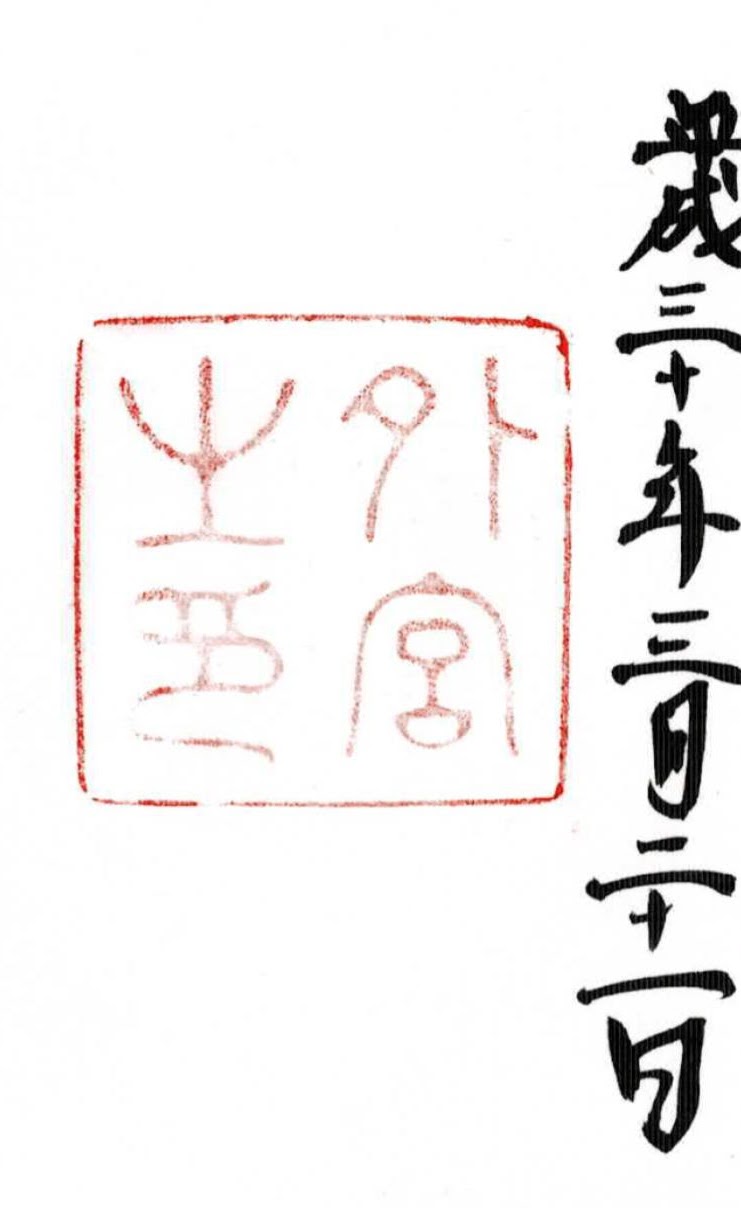 平成三十年三月二十一日
外宮
之印